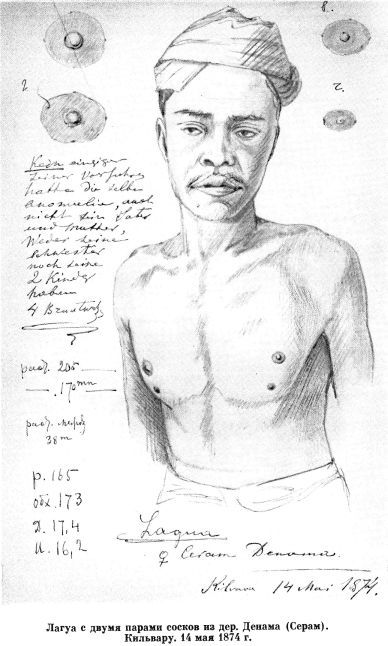 в.
2.
г.
Kein einziger
seiner Vorfahren
hatte die selbe
Anomalie, auch
nicht sein Vater
und Mutter,
Weder seine
Schwester
noch seine
2 Kinder
haben
4 Brustw
205
170 mm
38 m
р. 165
обх. 173
Д. 17,4
И. 16,2
Lagua
Ceram Denama.
Kilvaru 14 Mai 1874.
Лагуа с двумя парами сосков из дер. Денама (Серам).
Кильвару. 14 мая 1874 г.